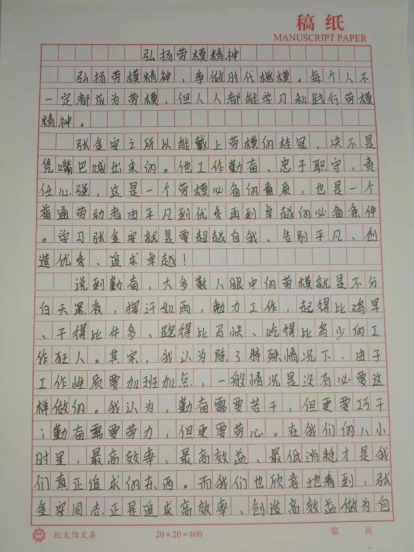 稿纸
MANUSCRIPT PAPER
弘扬劳模精神
弘扬劳模精神，争做时代楷模。每个人不
一定都成为劳模，但人人都能学习和践行劳模
精神。
张全安之所以能戴上劳模的桂冠，决不是
凭嘴巴喊出来的。他工作勤奋、忠于职守、责
任心强，这是一个劳模必备的素质，也是一个
普通劳动者由平凡到优秀再到卓越的必备条件
。学习张全安就是要超越自我、告别平凡、创
造优秀、追求卓越！
说到勤奋，大多数人眼中的劳模就是不分
白天黑夜，挥汗如雨，勉力工作，起得比鸡早
、干得比牛多、跑得比马快、吃得比鸟少的工
作狂人。其实，我认为除了特殊情况下，由于
工作性质要加班加点，一般情况是没有必要这
样做的。我认为，勤奋需要苦干，但更要巧干
；勤奋需要劳力，但更要劳心。在我们的八小
时里，最高效率、最高效益、最低消耗才是我
们真正追求的东西。而我们也欣喜地看到，张
全安同志正是追求高效率、创造高效益做为自
红太阳文具
20×20=400
第 页